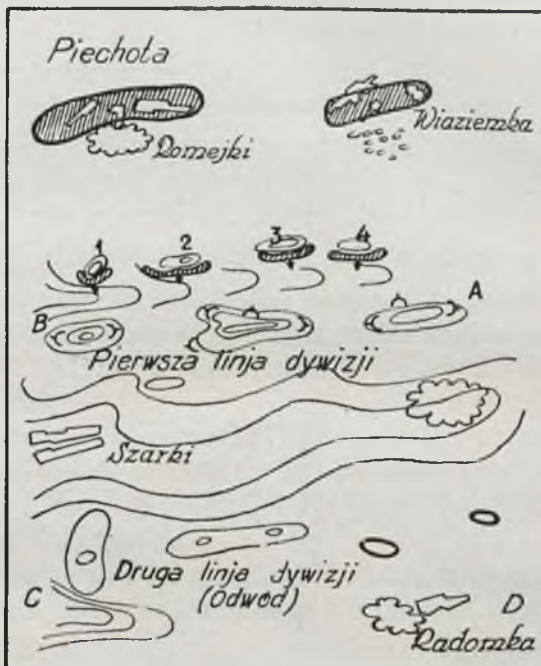 Piechota
Romejki
Wiaziemka
1 2 3 4
A
B
Pierwsza linja dywizji
Szarki
Druga linja dywizji
(Odwód)
C
D
Radomka